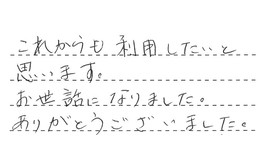 これからも利用したいと
思います。
お世話になりました。
ありがとうございました。